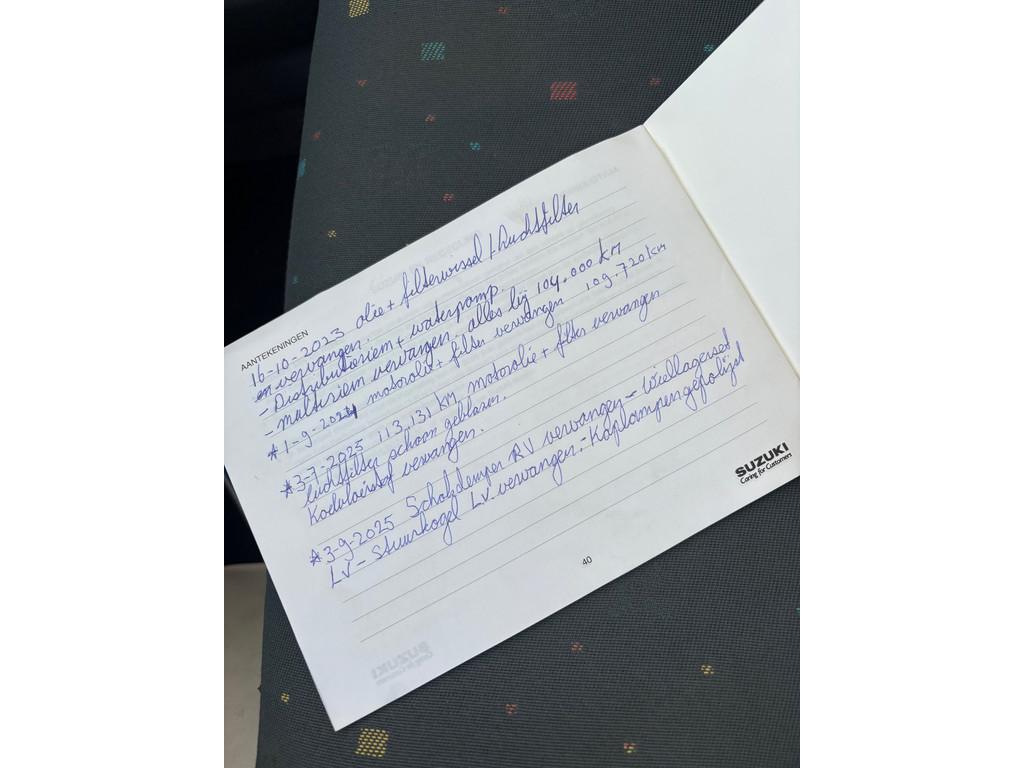 AANTEKENINGEN
16-10-2023 olie + filterwissel / Luchtfilter
en vervangen.
- Distributieriem + waterpomp.
- multiriem vervangen. alles bij 104.000 km
* 1-9-2024 motorolie + filter vervangen 109.720 km
* 3-7-2025 113.131 km motorolie + filter vervangen
luchtfilter schoon geblazen.
Koelvloeistof vervangen.
* 3-9-2025 Schokdemper RV vervangen - Wiellagerset
LV - Stuurkogel LV. vervangen. - Koplampen gepolijst
SUZUKI
Caring for Customers
40